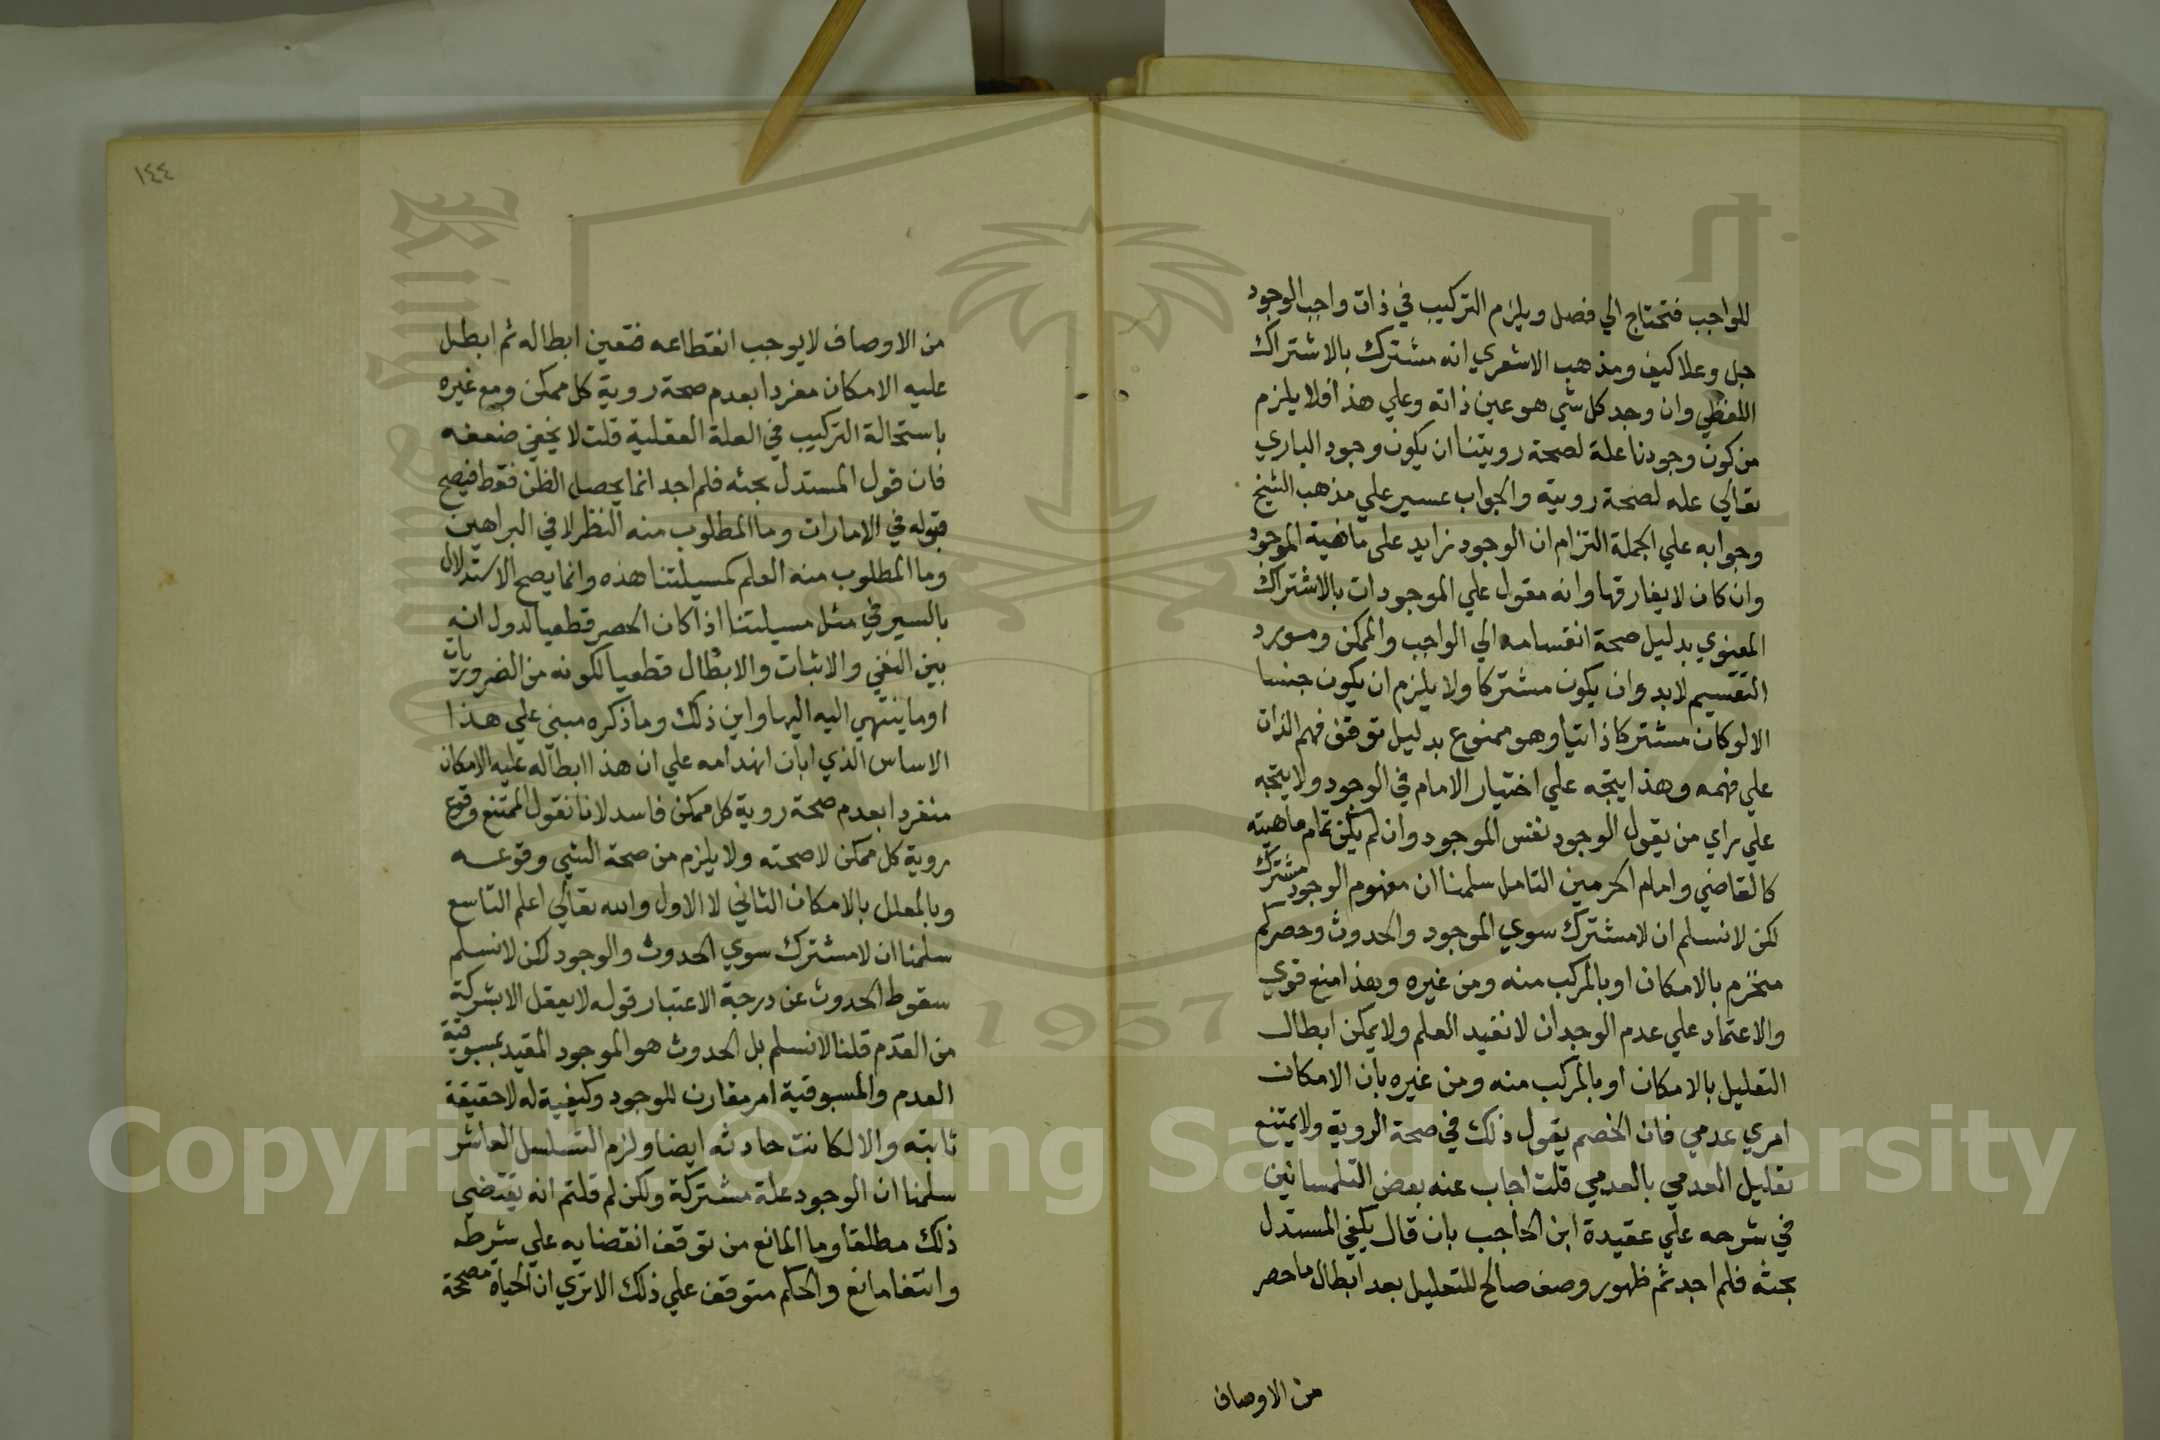 للواجب فتحتاج الي فصل ويلزم التركيب في ذات واجب الوجود
جل وعلا كيف ومذهب الاشعري انه مشترك بالاشتراك
اللفظي وان وجد كل شي هو عين ذاته وعلي هذا فلا يلزم
من كون وجودنا علة لصحة رويتنا ان يكون وجود الباري
تعالي عله لصحة رويته والجواب عسير علي مذهب الشيخ
وجوابه علي الجملة التزام ان الوجود زايد على ماهية الموجود
وان كان لا يفارقها وانه مقول علي الموجودات بالاشتراك
المعنوي بدليل صحة انقسامه الي الواجب والممكن ومورد
التقسيم لابد وان يكون مشتركا ولا يلزم ان يكون جنسا
الا لو كان مشتركا ذاتيا وهو ممنوع بدليل توقف فهم الذات
علي فهمه وهذا يتجه علي اختيار الامام في الوجود ولا يتجه
علي راي من يقول الوجود نفس الموجود وان لم يكن تمام ماهيته
كالقاضي وامام الحرمين التامل سلمنا ان مفهوم الوجود مشترك
لكن لا نسلم ان لا مشترك سوي الموجود والحدوث وحصركم
منخرم بالامكان او بالمركب منه ومن غيره وهذا منع قوي
والاعتماد علي عدم الوجدان لا نفيد العلم ولا يمكن ابطال
التعليل بالامكان او بالمركب منه ومن غيره بان الامكان
امري عدمي فان الخصم يقول ذلك في صحة الروية ولا يمتنع
تعليل العدمي بالعدمي قلت اجاب عنه بعض التلمسانين
في شرحه علي عقيدة ابن الحاجب بان قال يكفي المستدل
بحثه فلم اجد ثم ظهور وصف صالح للتعليل بعد ابطال ما حصر
من الاوصاف
١٤٤
من الاوصاف لا يوجب انقطاعه فتعين ابطاله ثم ابطل
عليه الامكان مفردا بعدم صحة روية كل ممكن ومع غيره
باستحالة التركيب في العلة العقلية قلت لا يخفي ضعفه
فان قول المستدل بحثه فلم اجد انما يحصل الظن فقط فيصح
قبوله في الامارات وما المطلوب منه النظر لا في البراهين
وما المطلوب منه العلم كمسيلتنا هذه وانما يصح الاستدلال
بالسير في مثل مسيلتنا اذا كان الحصر قطعيا لدوله انه
بين النفي والاثبات والابطال قطعيا لكونه من الضروريات
او ما ينتهي اليه اليها واين ذلك وما ذكره مبني علي هذا
الاساس الذي ابان انهدامه علي ان هذا ابطاله عليه الامكان
منفردا بعدم صحة روية كل ممكن فاسد لانا نقول الممتنع وقوع
روية كل ممكن لا صحته ولا يلزم من صحة الشي وقوعه
وبالمعلل بالامكان الثاني لا الاول والله تعالي اعلم التاسع
سلمنا ان لا مشترك سوي الحدوث والوجود لكن لا نسلم
سقوط الحدوث عن درجة الاعتبار قوله لا يعقل الا بشركة
من العدم قلنا لا نسلم بل الحدوث هو الموجود المقيد بمسبوقية
العدم والمسبوقية امر مقارن للموجود وكيفية له لا حقيقة
ثابته والا لكانت حادثه ايضا ولزم التسلسل العاشر
سلمنا ان الوجود علة مشتركة ولكن لم قلتم انه يقتضي
ذلك مطلقا وما المانع من توقف انقضايه علي شرطه
وانتفا مانع والحكم متوقف علي ذلك الا تري ان الحياة مصححة
Copyright © King Saud University
1957